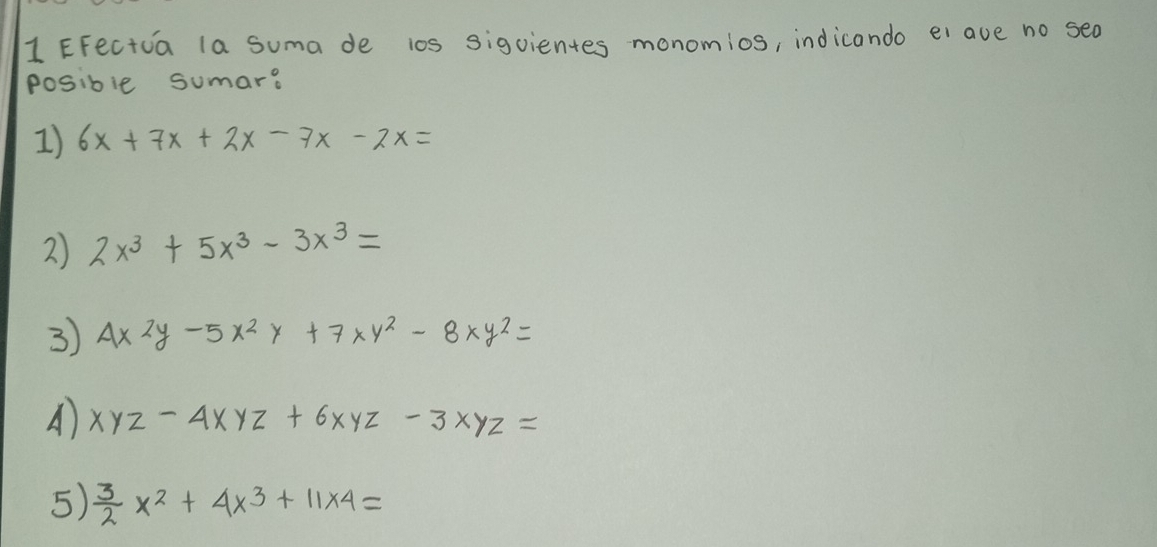 1 Efectúa la suma de los siguientes monomios, indicando el que no sea
posible sumar:
1) 6x + 7x + 2x - 7x - 2x =
2) 2x³ + 5x³ - 3x³ =
3) 4x²y - 5x²y + 7xy² - 8xy² =
4) xyz - 4xyz + 6xyz - 3xyz =
5) 3/2 x² + 4x³ + 11x4 =